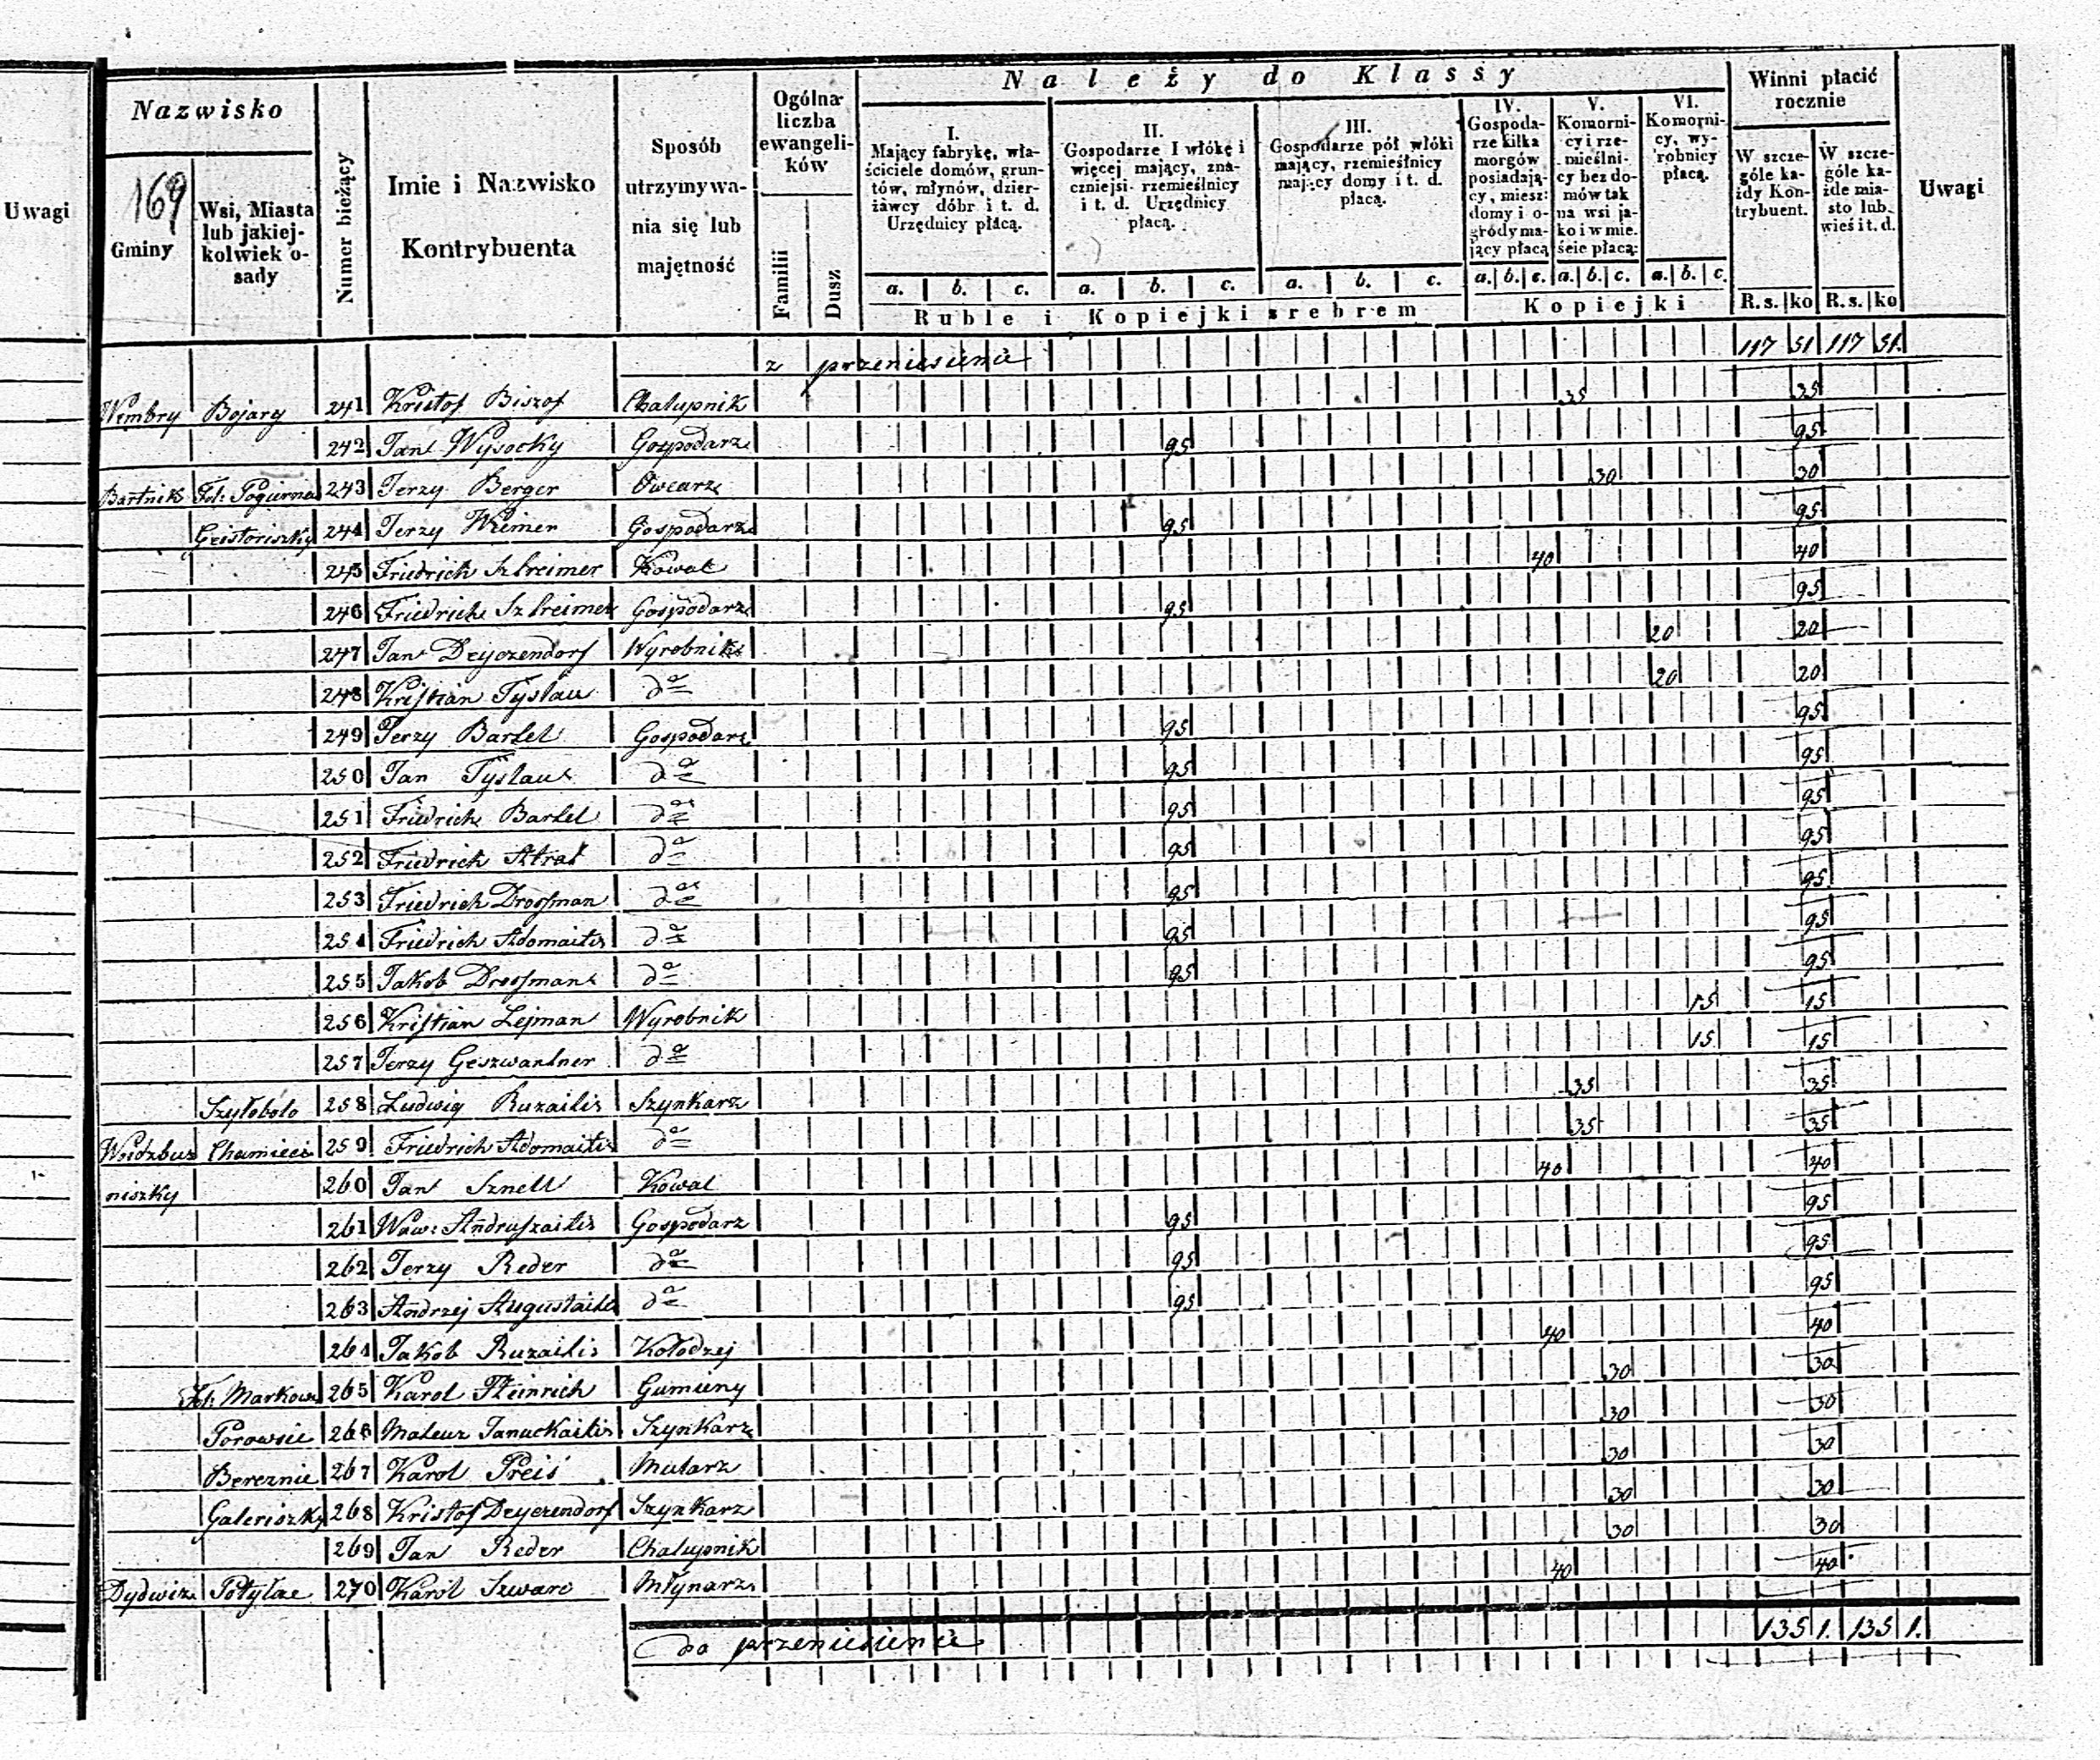 Uwagi
Nazwisko
169
Gminy
Wsi, Miasta lub jakiejkolwiek osady
Numer bieżący
Imie i Nazwisko Kontrybuenta
Sposób utrzymywania się lub majętność
Ogólna liczba ewangelików
Familii
Dusz
Należy do Klassy
I. Mający fabrykę, właściciele domów, gruntów, młynów, dzierżawcy dóbr i t. d. Urzędnicy płacą.
II. Gospodarze I włókę i więcej mający, znaczniejsi rzemieślnicy i t. d. Urzędnicy płacą.
III. Gospodarze pół włóki mający, rzemieślnicy mający domy i t. d. płacą.
IV. Gospodarze kilka morgów posiadający, miesz: domy i ogrody mający płacą
V. Komornicy i rzemieślnicy bez domów tak na wsi jako i w mieście płacą:
VI. Komornicy, wyrobnicy płacą.
a. b. c. a. b. c. a. b. c. a. b. c. a. b. c. a. b. c.
Ruble i Kopiejki srebrem
Kopiejki
Winni płacić rocznie
W szczególe każdy Kontrybuent.
W szczególe każde miasto lub wieś i t. d.
R. s. ko R. s. ko
Uwagi
z przeniesienia 117 51 117 51.
Wembry Bojary 241 Kristof Biszof Chalupnik 35 35
242 Jan Wysocky Gospodarz 95 95
Bartnik Fol: Pogurna 243 Jerzy Berger Owcarz 30 30
Geistoriszky 244 Jerzy Weimer Gospodarz 95 95
245 Friedrich Szlreimer Kowal 40 40
246 Friedrich Szlreimer Gospodarz 95 95
247 Jan Deyczendorf Wyrobnik 20 20
248 Kristian Tyslau do 20 20
249 Jerzy Bartel Gospodarz 95 95
250 Jan Tyslau do 95 95
251 Friedrich Bartel do 95 95
252 Friedrich Strat do 95 95
253 Friedrich Drossman do 95 95
254 Friedrich Adomaitis do 95 95
255 Jakob Drossman do 95 95
256 Kristian Lejman Wyrobnik 15 15
257 Jerzy Geszwantner do 15 15
Szyłoboło 258 Ludwig Ruzaitis Szynkarz 35 35
Woidzbu Chamieci 259 Friedrich Adomaitis do 35 35
niszky 260 Jan Sznell Kowal 40 40
261 Waw: Andruszaitis Gospodarz 95 95
262 Jerzy Reder do 95 95
263 Andrzej Augustaitis do 95 95
264 Jakob Ruzaitis Kołodzej 40 40
Fol: Markow 265 Karol Heinrich Gumieny 30 30
Porowsie 266 Mateuz Januckaitis Szynkarz 30 30
Bereznie 267 Karol Preis Mularz 30 30
Galeriszky 268 Kristof Deyczendorf Szynkarz 30 30
269 Jan Reder Chalupnik 30 30
Dydwiz Potylze 270 Karol Szwarc Młynarz 40 40
do przeniesienia 135 1. 135 1.